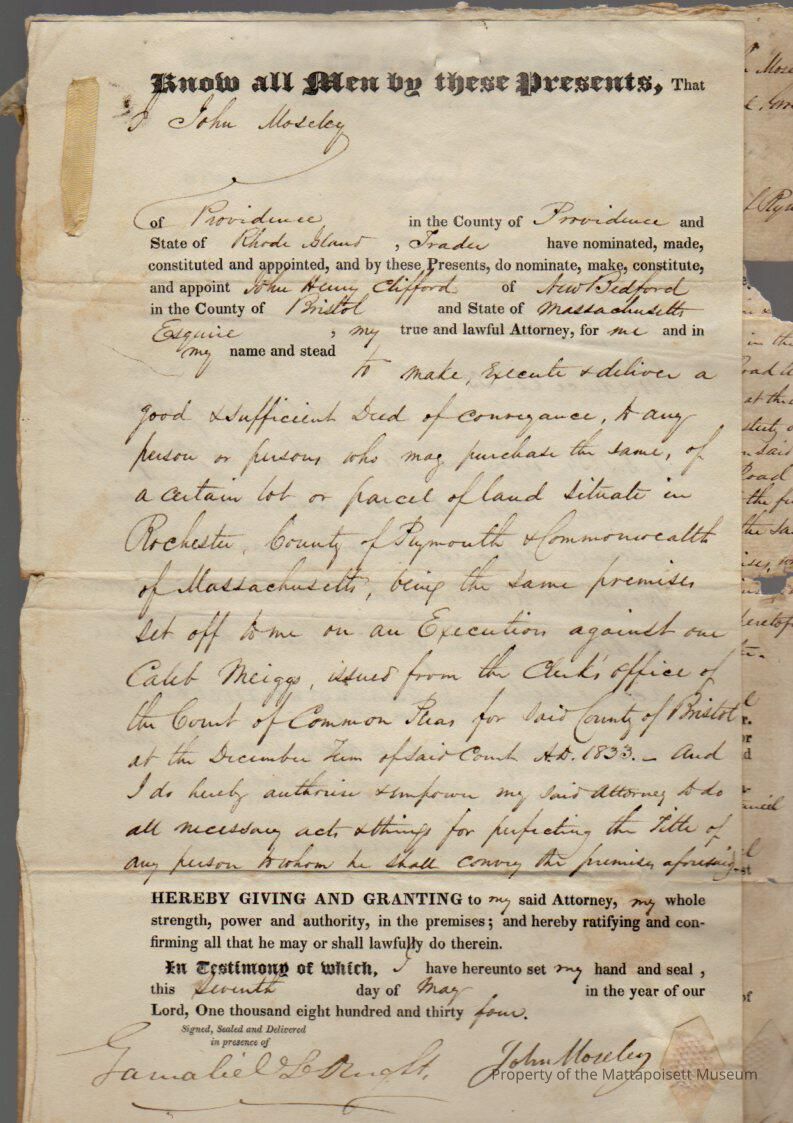 Know all Men by these Presents, That
I John Moseley
of Providence in the County of Providence and
State of Rhode Island , Trader have nominated, made,
constituted and appointed, and by these Presents, do nominate, make, constitute,
and appoint John Henry Clifford of New Bedford
in the County of Bristol and State of Massachusetts
Esquire , my true and lawful Attorney, for me and in
my name and stead
to make, execute & deliver a
good & sufficient Deed of conveyance, to any
person or persons who may purchase the same, of
a certain lot or parcel of land situate in
Rochester, County of Plymouth & Commonwealth
of Massachusetts, being the same premises
set off to me on an Execution against one
Caleb Meiggs, issued from the Clerk's office of
the Court of Common Pleas for said County of Bristol
at the December Term of said Court A.D. 1833. – And
I do hereby authorise & empower my said Attorney to do
all necessary acts & things for perfecting the Title of
any person to whom he shall convey the premises aforesaid
HEREBY GIVING AND GRANTING to my said Attorney, my whole
strength, power and authority, in the premises; and hereby ratifying and con-
firming all that he may or shall lawfully do therein.
In Testimony of which, I have hereunto set my hand and seal ,
this Seventh day of May in the year of our
Lord, One thousand eight hundred and thirty four.
Signed, Sealed and Delivered
in presence of
Gamaliel L. Dwight. John Moseley
Property of the Mattapoisett Museum